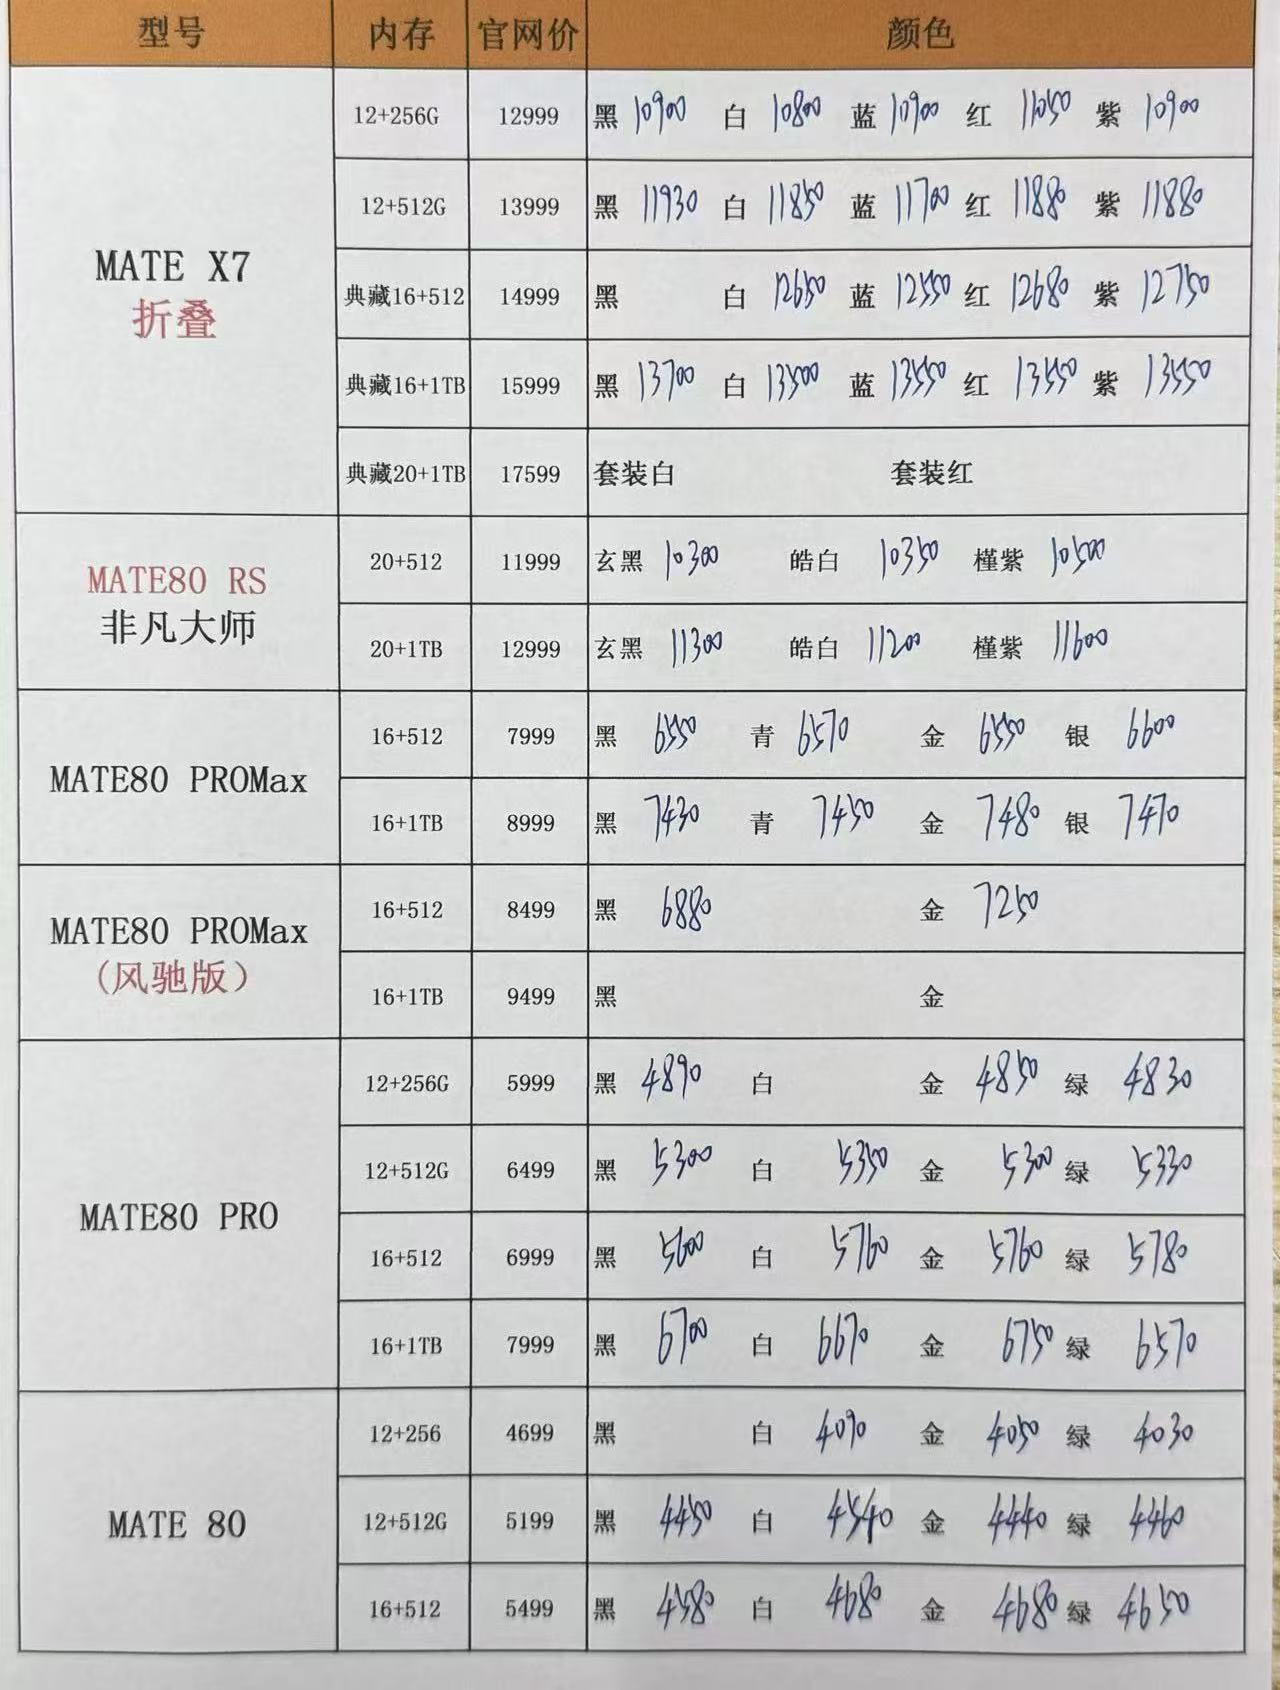 型号 内存 官网价 颜色
12+256G 12999 黑 10900 白 10800 蓝 10900 红 11050 紫 10900
12+512G 13999 黑 11930 白 11850 蓝 11700 红 11880 紫 11880
MATE X7
折叠
典藏16+512 14999 黑 白 12650 蓝 12550 红 12680 紫 12750
典藏16+1TB 15999 黑 13700 白 13500 蓝 13550 红 13550 紫 13550
典藏20+1TB 17599 套装白 套装红
MATE80 RS
非凡大师
20+512 11999 玄黑 10300 皓白 10350 槿紫 10500
20+1TB 12999 玄黑 11300 皓白 11200 槿紫 11600
MATE80 PROMax
16+512 7999 黑 6550 青 6570 金 6550 银 6600
16+1TB 8999 黑 7430 青 7450 金 7480 银 7470
MATE80 PROMax
(风驰版)
16+512 8499 黑 6880 金 7250
16+1TB 9499 黑 金
MATE80 PRO
12+256G 5999 黑 4890 白 金 4850 绿 4830
12+512G 6499 黑 5300 白 5350 金 5300 绿 5330
16+512 6999 黑 5600 白 5760 金 5760 绿 5780
16+1TB 7999 黑 6700 白 6670 金 6750 绿 6570
MATE 80
12+256 4699 黑 白 4090 金 4050 绿 4030
12+512G 5199 黑 4450 白 4540 金 4440 绿 4460
16+512 5499 黑 4580 白 4680 金 4680 绿 4650